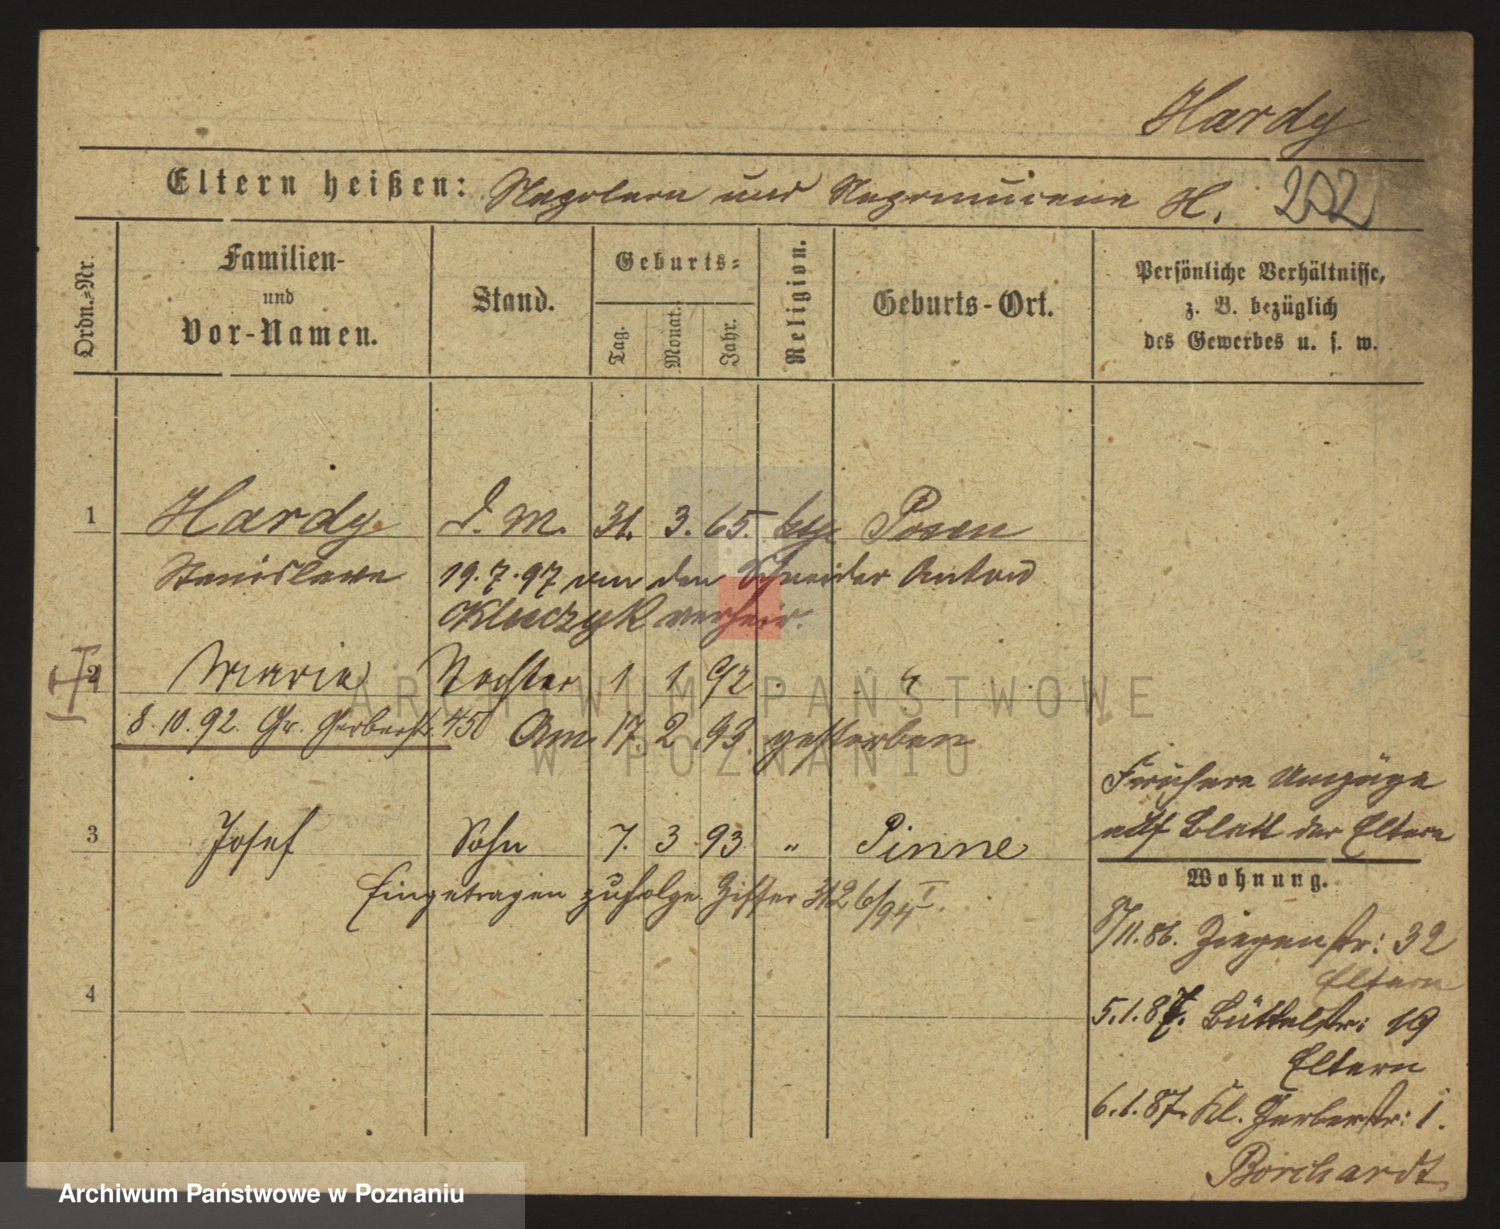 Hardy
Eltern heißen: und H. 202
Ordn.=Nr.
Familien-
und
Vor-Namen.
Stand.
Geburts=
Tag.
Monat.
Jahr.
Religion.
Geburts-Ort.
Persönliche Verhältnisse,
z. B. bezüglich
des Gewerbes u. s. w.
1 Hardy D. M. 31. 3. 65. Posen
Stanislawa 19.7.97 an den Schneider Anton
Kluczyk verheir.
2 Marie Tochter 1 1 92 "
8.10.92. Gr. Gerberstr. 450 Am 17. 2 93 gestorben
Frühere Umzüge
auf Blatt der Eltern
3 Josef Sohn 7. 3 93 " Pinne
Eingetragen zufolge Ziffer 312 6/94 I.
Wohnung.
8/11.86. Ziegenstr: 32
Eltern
4
5.1.87. Büttelstr: 19
Eltern
6.1.87. Kl. Gerberstr: 1.
Borchardt
ARCHIWUM PAŃSTWOWE
W POZNANIU
Archiwum Państwowe w Poznaniu